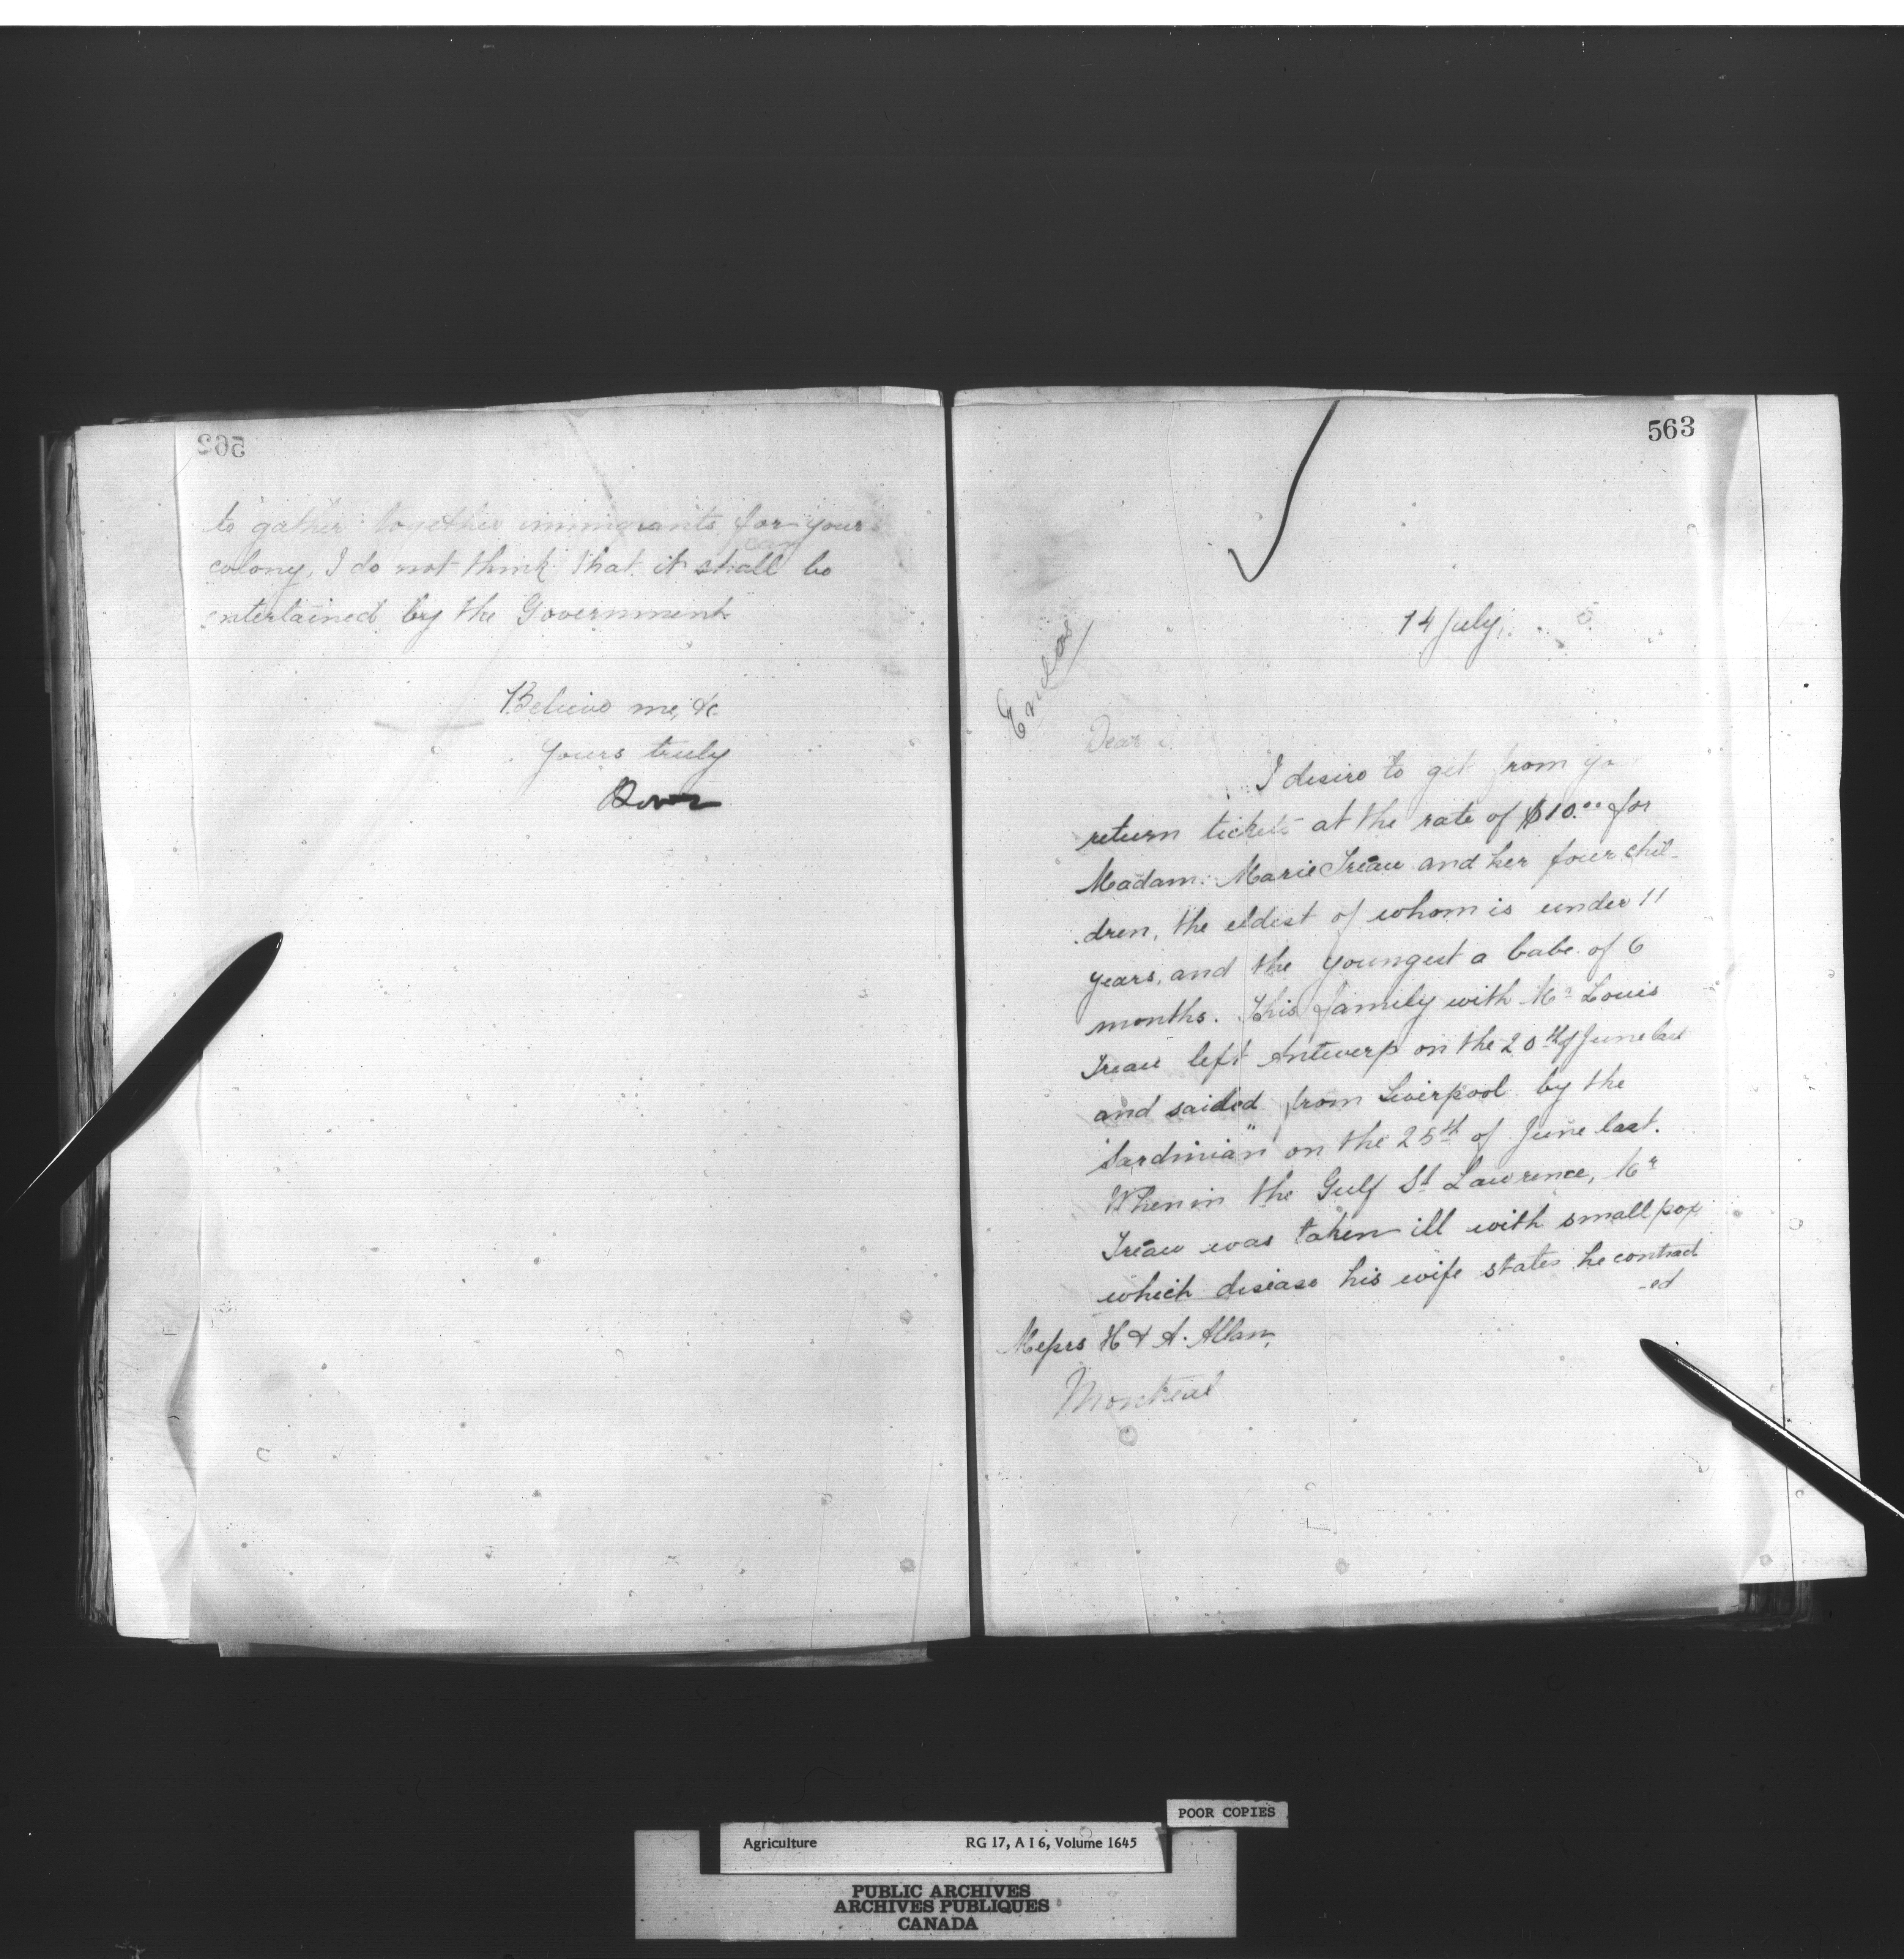 562
to gather together immigrants for your
can
colony, I do not think that it shall be
entertained by the Government.
Believe me, &c
Yours truly
563
14 July,
Enclos
Dear
I desire to get from you
return tickets at the rate of $10.00 for
Madam. Marie Tréau and her four chil-
dren, the eldest of whom is under 11
years, and the youngest a babe of 6
months. This family with Mr Louis
Tréau left Antwerp on the 20th of June last
and sailed from Liverpool by the
"Sardinian" on the 25th of June last.
When in the Gulf St Lawrence, Mr
Tréau was taken ill with small pox
which disease his wife states he contract
-ed
Messrs H & A. Allan,
Montreal
POOR COPIES
Agriculture RG 17, A I 6, Volume 1645
PUBLIC ARCHIVES
ARCHIVES PUBLIQUES
CANADA